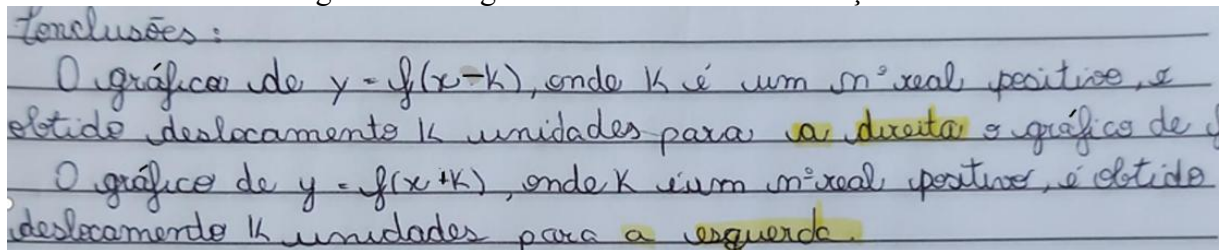 Conclusões:
O gráfico de y = f(x-k), onde k é um nº real positivo, é
obtido deslocamento k unidades para a direita o gráfico de f
O gráfico de y = f(x+k), onde k é um nº real positivo, é obtido
deslocamento k unidades para a esquerda.